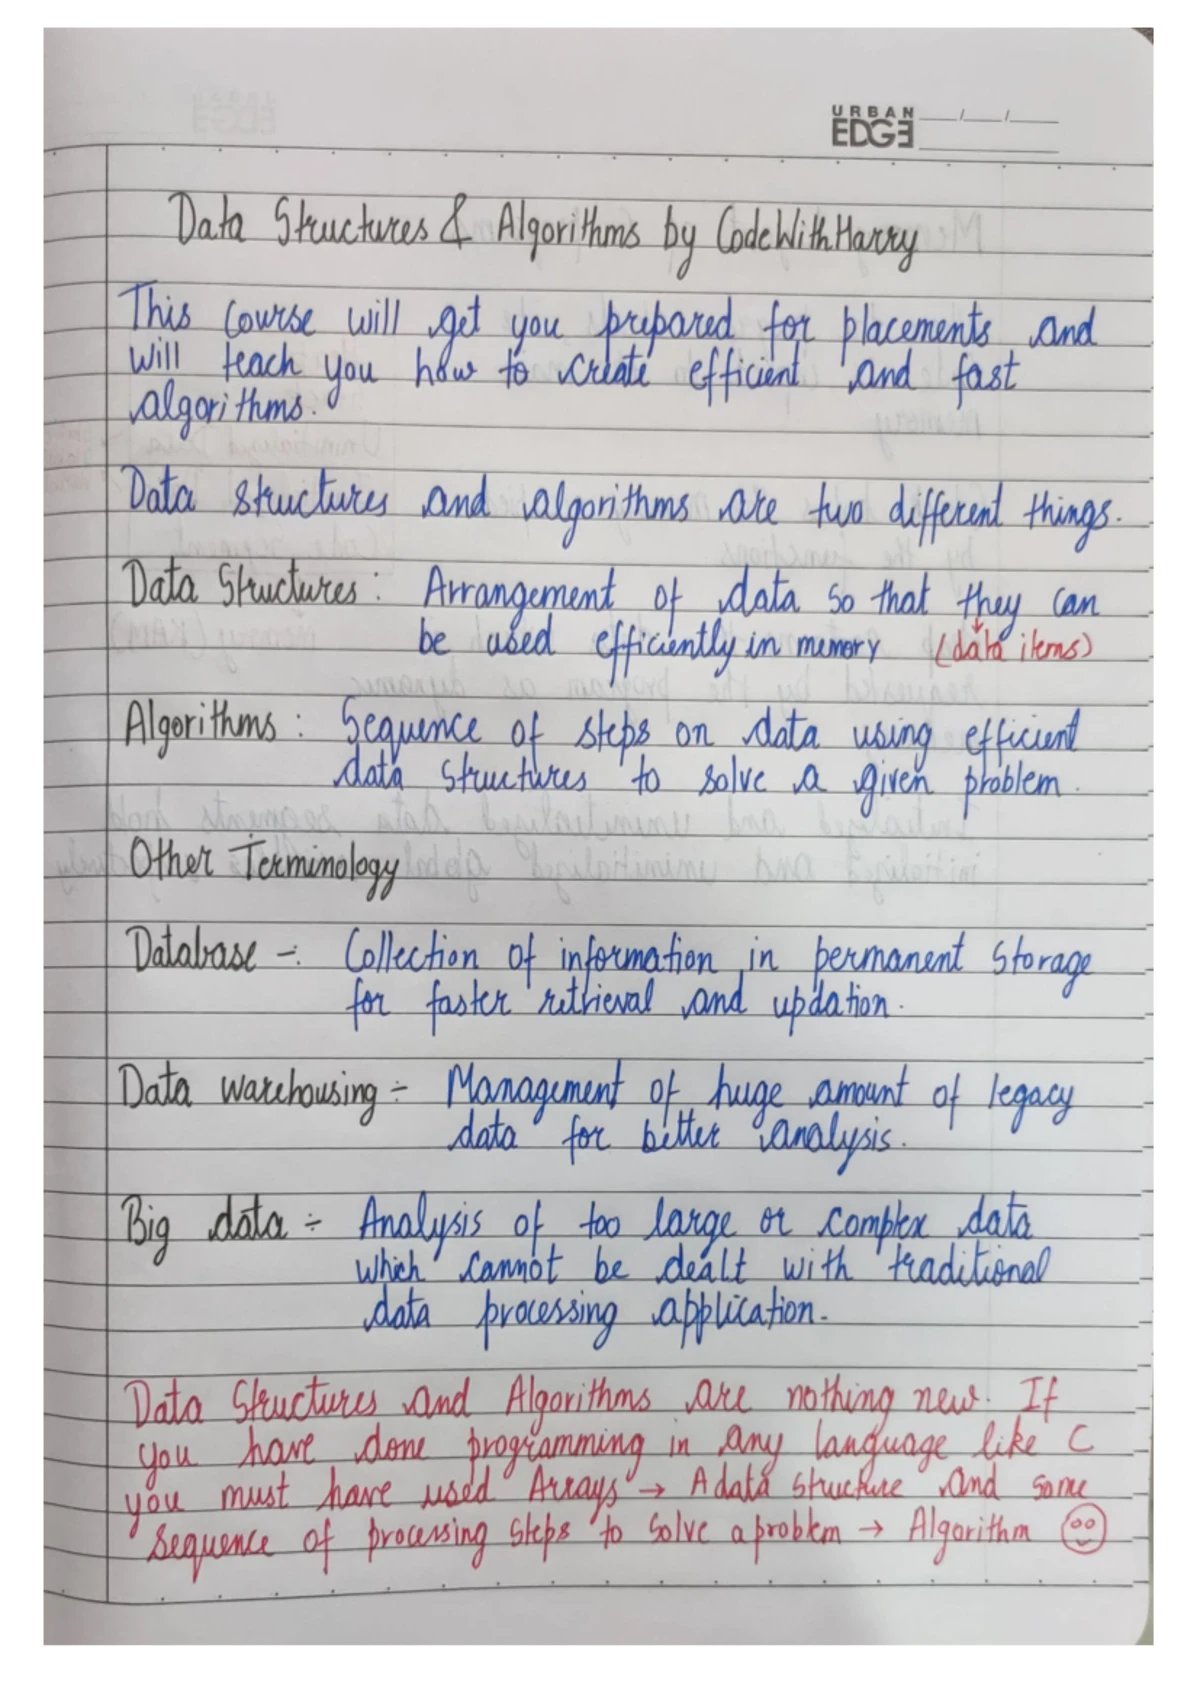 URBAN
EDGE
Data Structures & Algorithms by CodeWithHarry
This course will get you prepared for placements and
will teach you how to create efficient and fast
algorithms.
Data structures and algorithms are two different things.
Data Structures: Arrangement of data so that they can
be used efficiently in memory (data items)
Algorithms: Sequence of steps on data using efficient
data structures to solve a given problem.
Other Terminology
Database -: Collection of information in permanent storage
for faster retrieval and updation.
Data warehousing ÷ Management of huge amount of legacy
data for better analysis.
Big data ÷ Analysis of too large or complex data
which cannot be dealt with traditional
data processing application.
Data Structures and Algorithms are nothing new. If
you have done programming in any language like C
you must have used Arrays → A data structure and some
sequence of processing steps to solve a problem → Algorithm